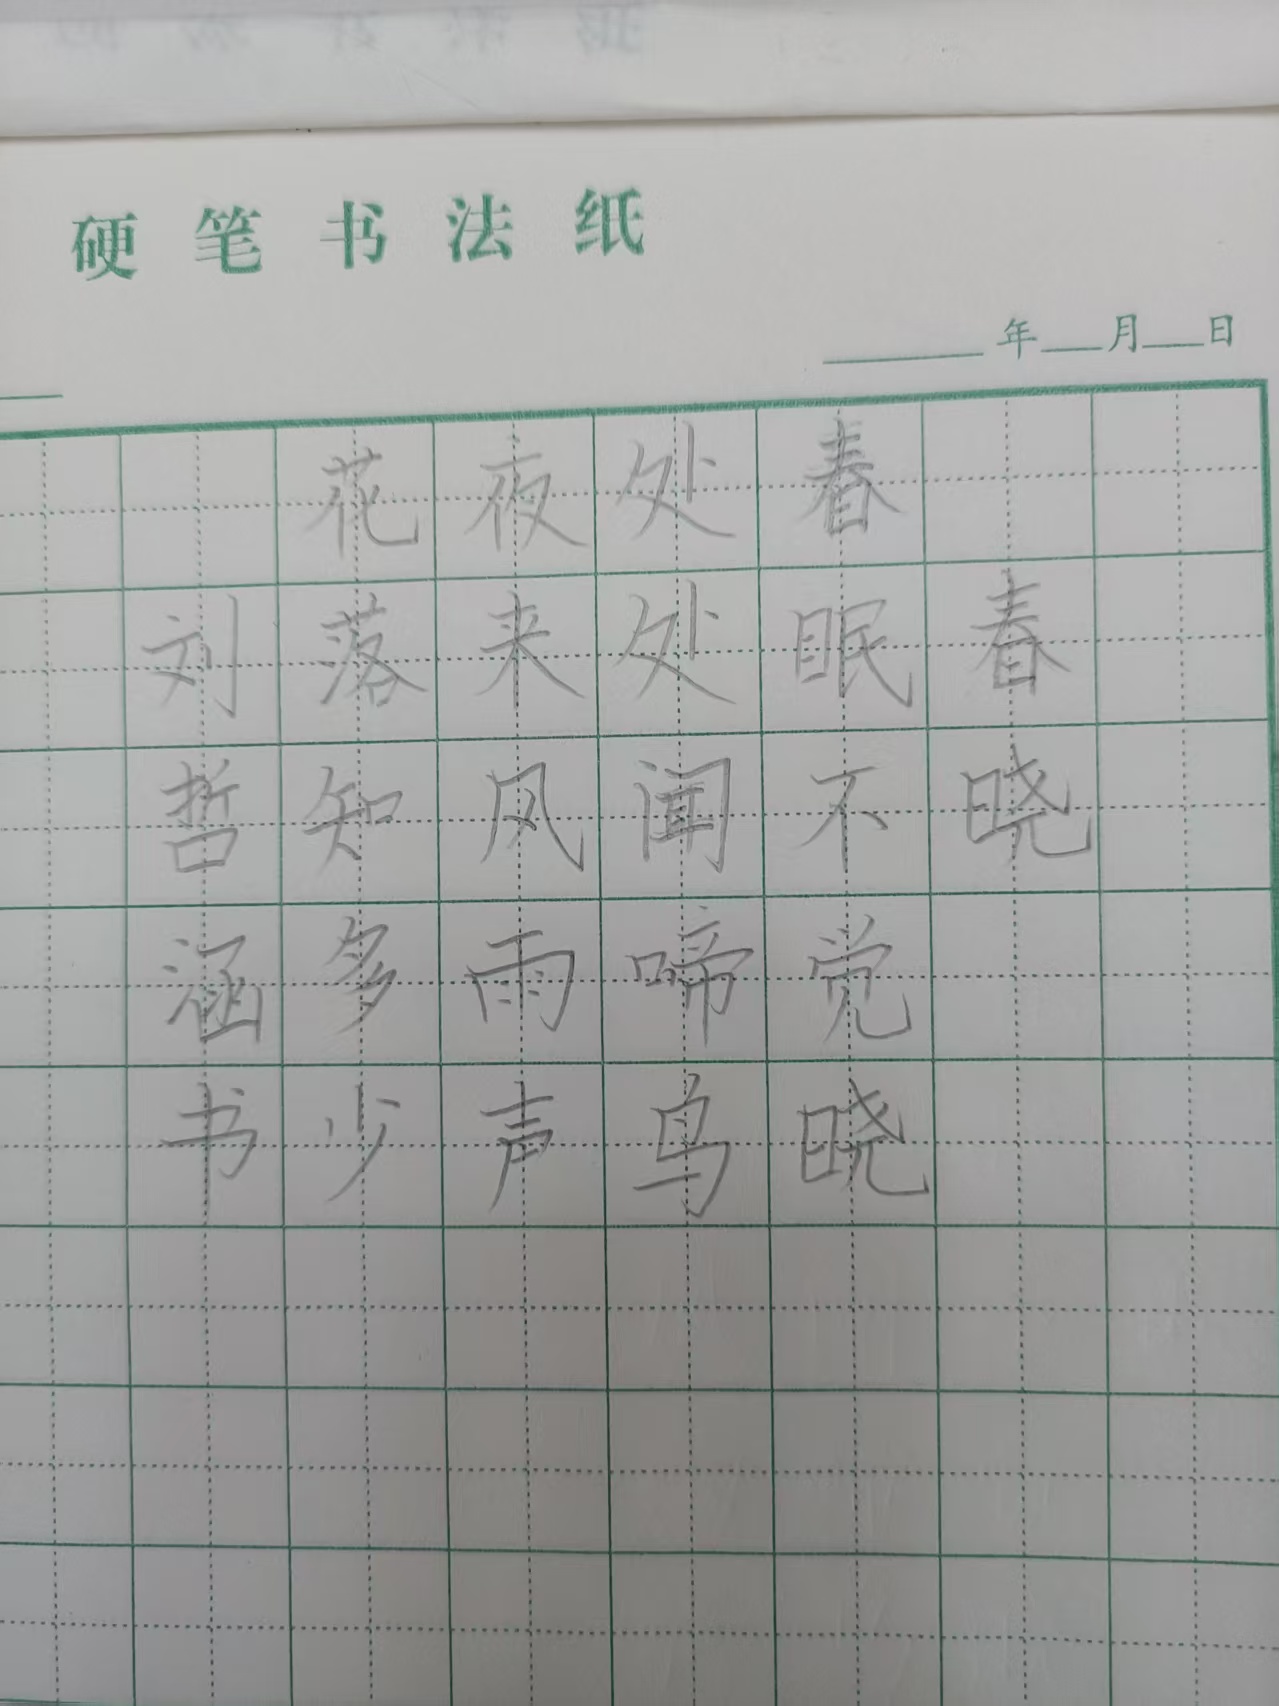 硬笔书法纸
年 月 日
春晓
春眠不觉晓
处处闻啼鸟
夜来风雨声
花落知多少
刘哲涵书